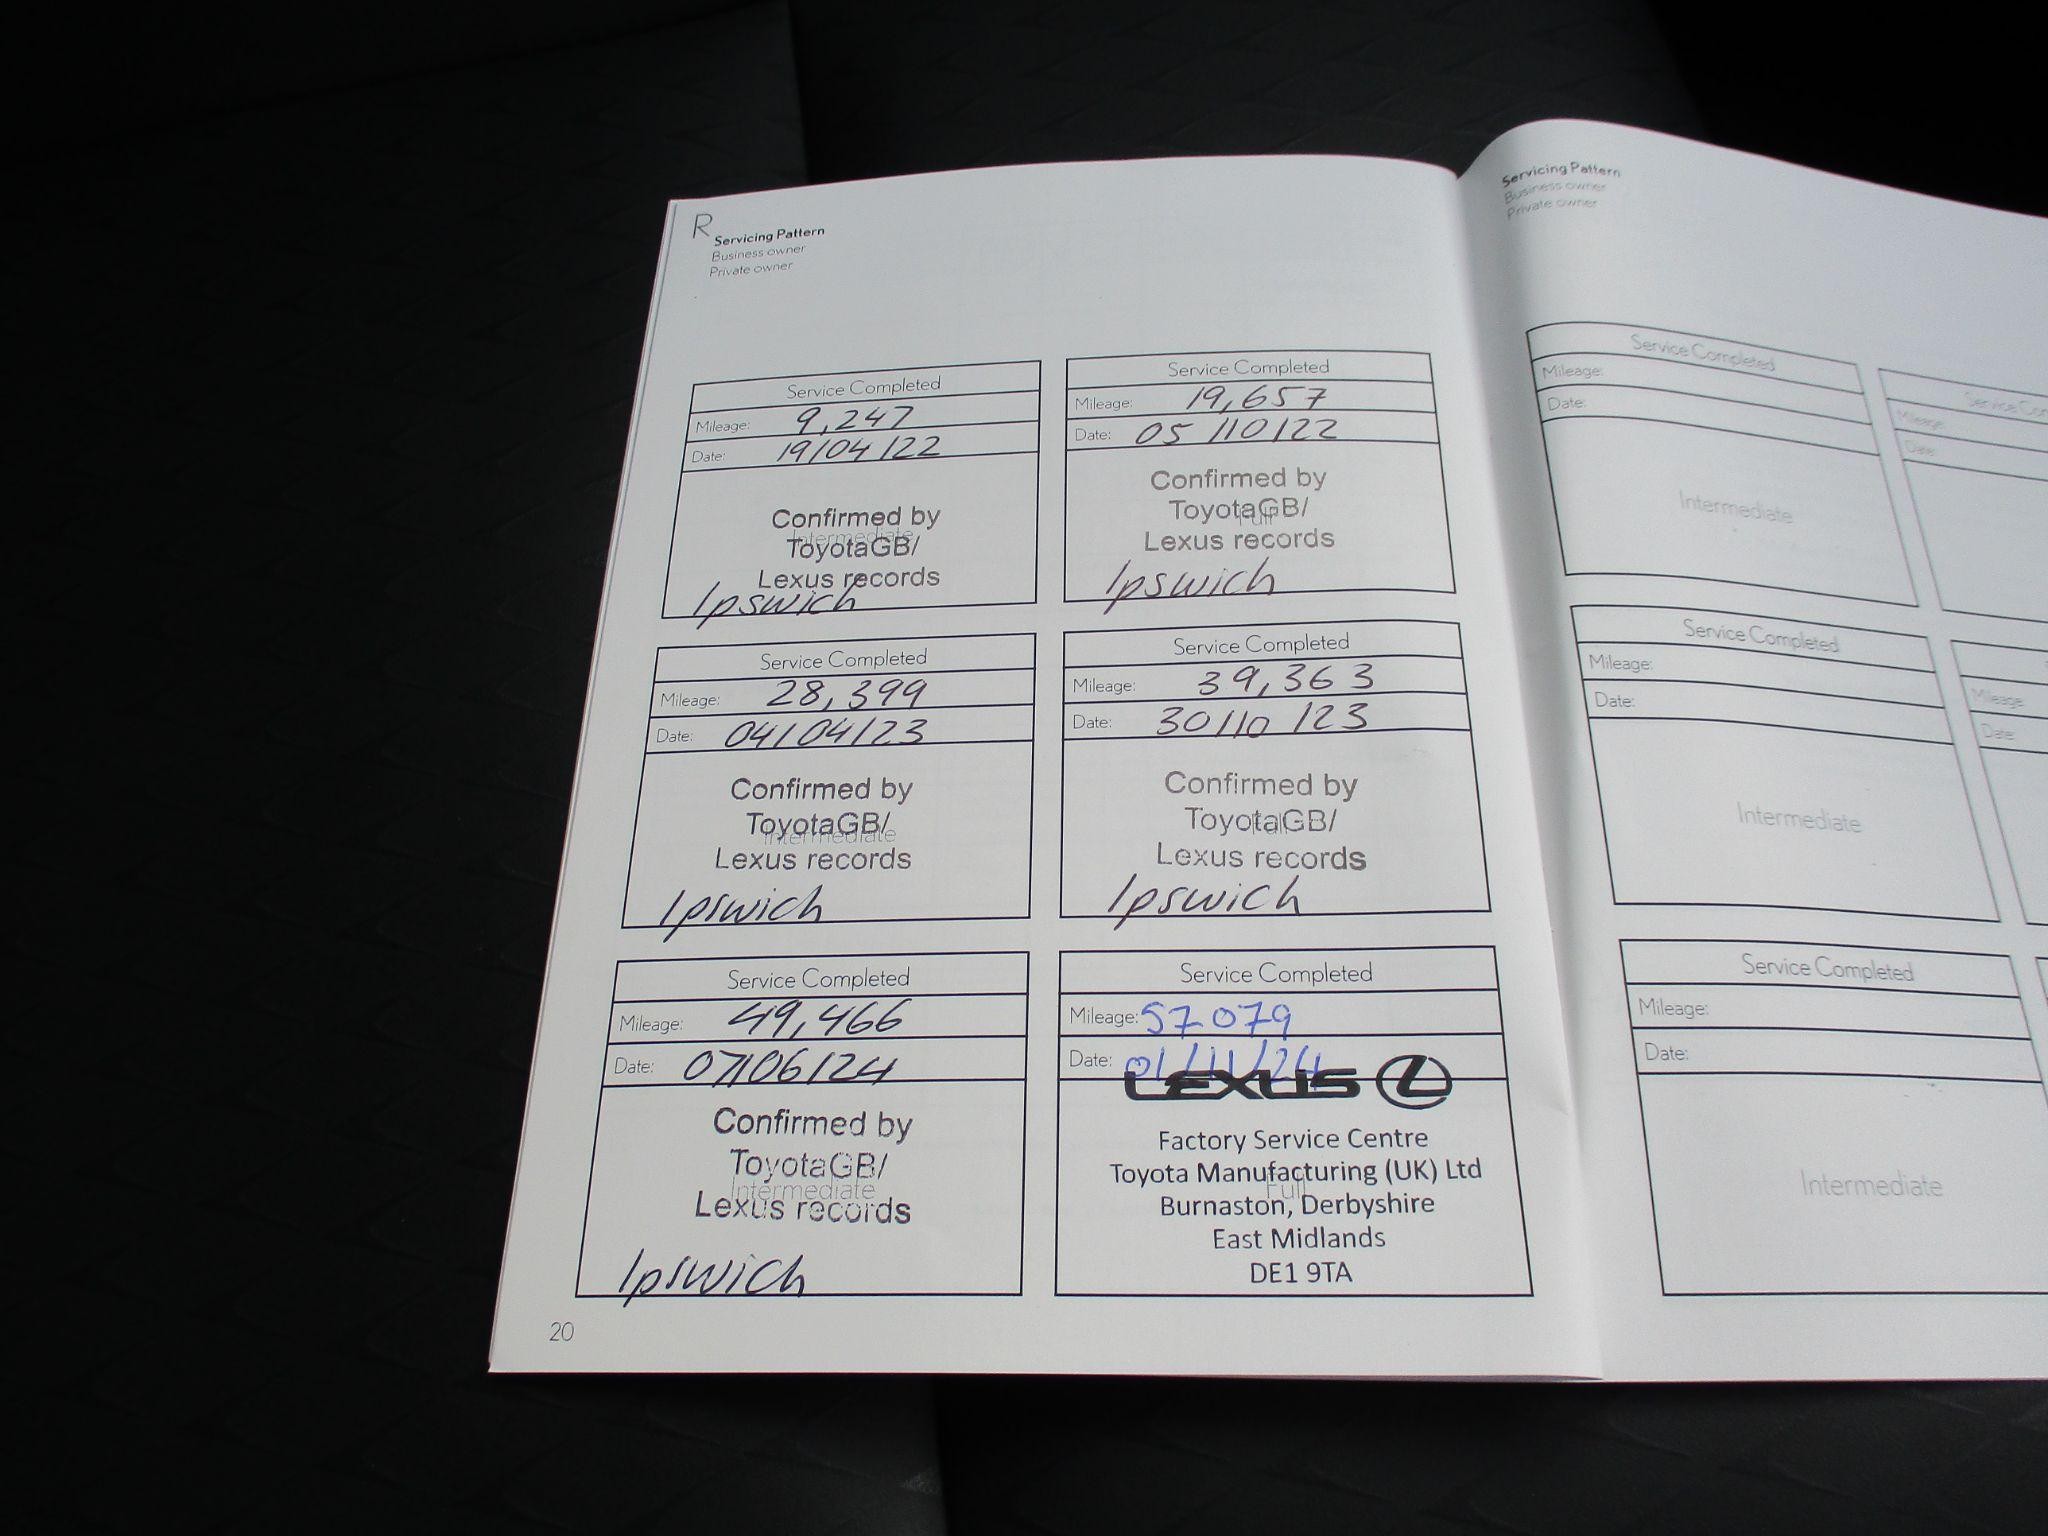 R
Servicing Pattern
Business owner
Private owner
Service Completed
Mileage: 9,247
Date: 19/04/22
Intermediate
Confirmed by
ToyotaGB/
Lexus records
Ipswich
Service Completed
Mileage: 19,657
Date: 05/10/22
Full
Confirmed by
ToyotaGB/
Lexus records
Ipswich
Service Completed
Mileage: 28,399
Date: 04/04/23
Intermediate
Confirmed by
ToyotaGB/
Lexus records
Ipswich
Service Completed
Mileage: 39,363
Date: 30/10/23
Full
Confirmed by
ToyotaGB/
Lexus records
Ipswich
Service Completed
Mileage: 49,466
Date: 07/06/24
Intermediate
Confirmed by
ToyotaGB/
Lexus records
Ipswich
Service Completed
Mileage: 57079
Date: 01/11/24
Full
LEXUS
Factory Service Centre
Toyota Manufacturing (UK) Ltd
Burnaston, Derbyshire
East Midlands
DE1 9TA
20
Servicing Pattern
Business owner
Private owner
Service Completed
Mileage:
Date:
Intermediate
Service Co
Mileage:
Date:
Service Completed
Mileage:
Date:
Intermediate
Mileage:
Date:
Service Completed
Mileage:
Date:
Intermediate